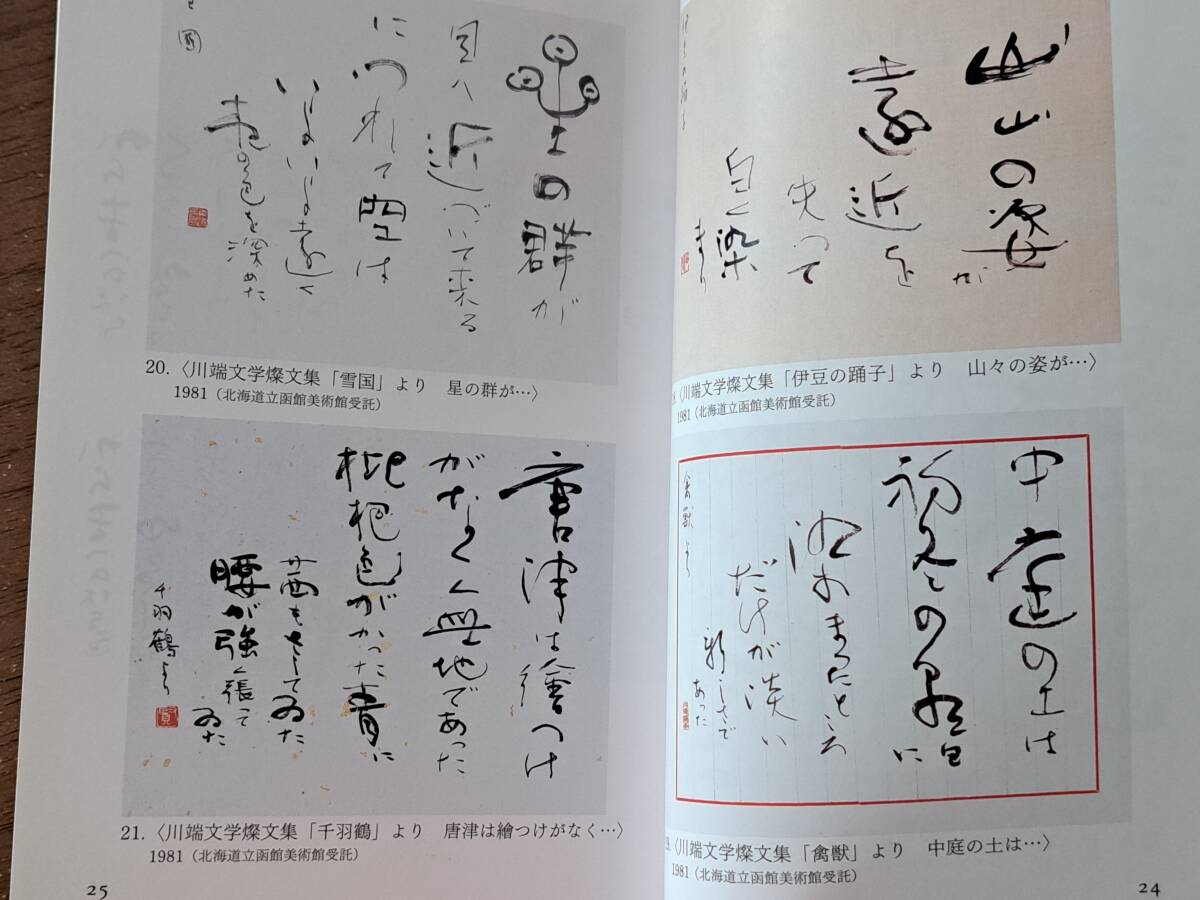 山山の姿が
遠近を
失って
白く染
まり
伊豆の踊子
8.〈川端文学燦文集「伊豆の踊子」より 山々の姿が…〉
1981（北海道立函館美術館受託）
中庭の土は
に
ところ
だけが淡い
新しさで
あった
禽獣より
9.〈川端文学燦文集「禽獣」より 中庭の土は…〉
1981（北海道立函館美術館受託）
24
星の群が
目へ近づいて来る
につれて空は
いよいよ遠く
夜の色を深めた
國
20.〈川端文学燦文集「雪国」より 星の群が…〉
1981（北海道立函館美術館受託）
唐津は繪つけ
がなく無地であった
枇杷色がかった青に
茜もさしてゐた
腰が強く張って
ゐた
千羽鶴より
21.〈川端文学燦文集「千羽鶴」より 唐津は繪つけがなく…〉
1981（北海道立函館美術館受託）
25